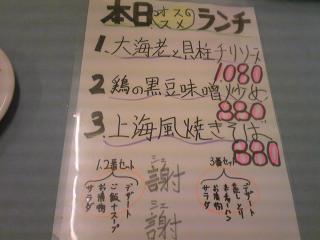 本日オススメランチ
1. 大海老と貝柱チリソース
1080
2 鶏の黒豆味噌炒め
880
3. 上海風焼きそば
880
1.2番セット
デザート
ご飯+スープ
お漬物
サラダ
シェ シェ
謝 謝
3番セット
デザート
蒸しどり
お漬物
サラダ